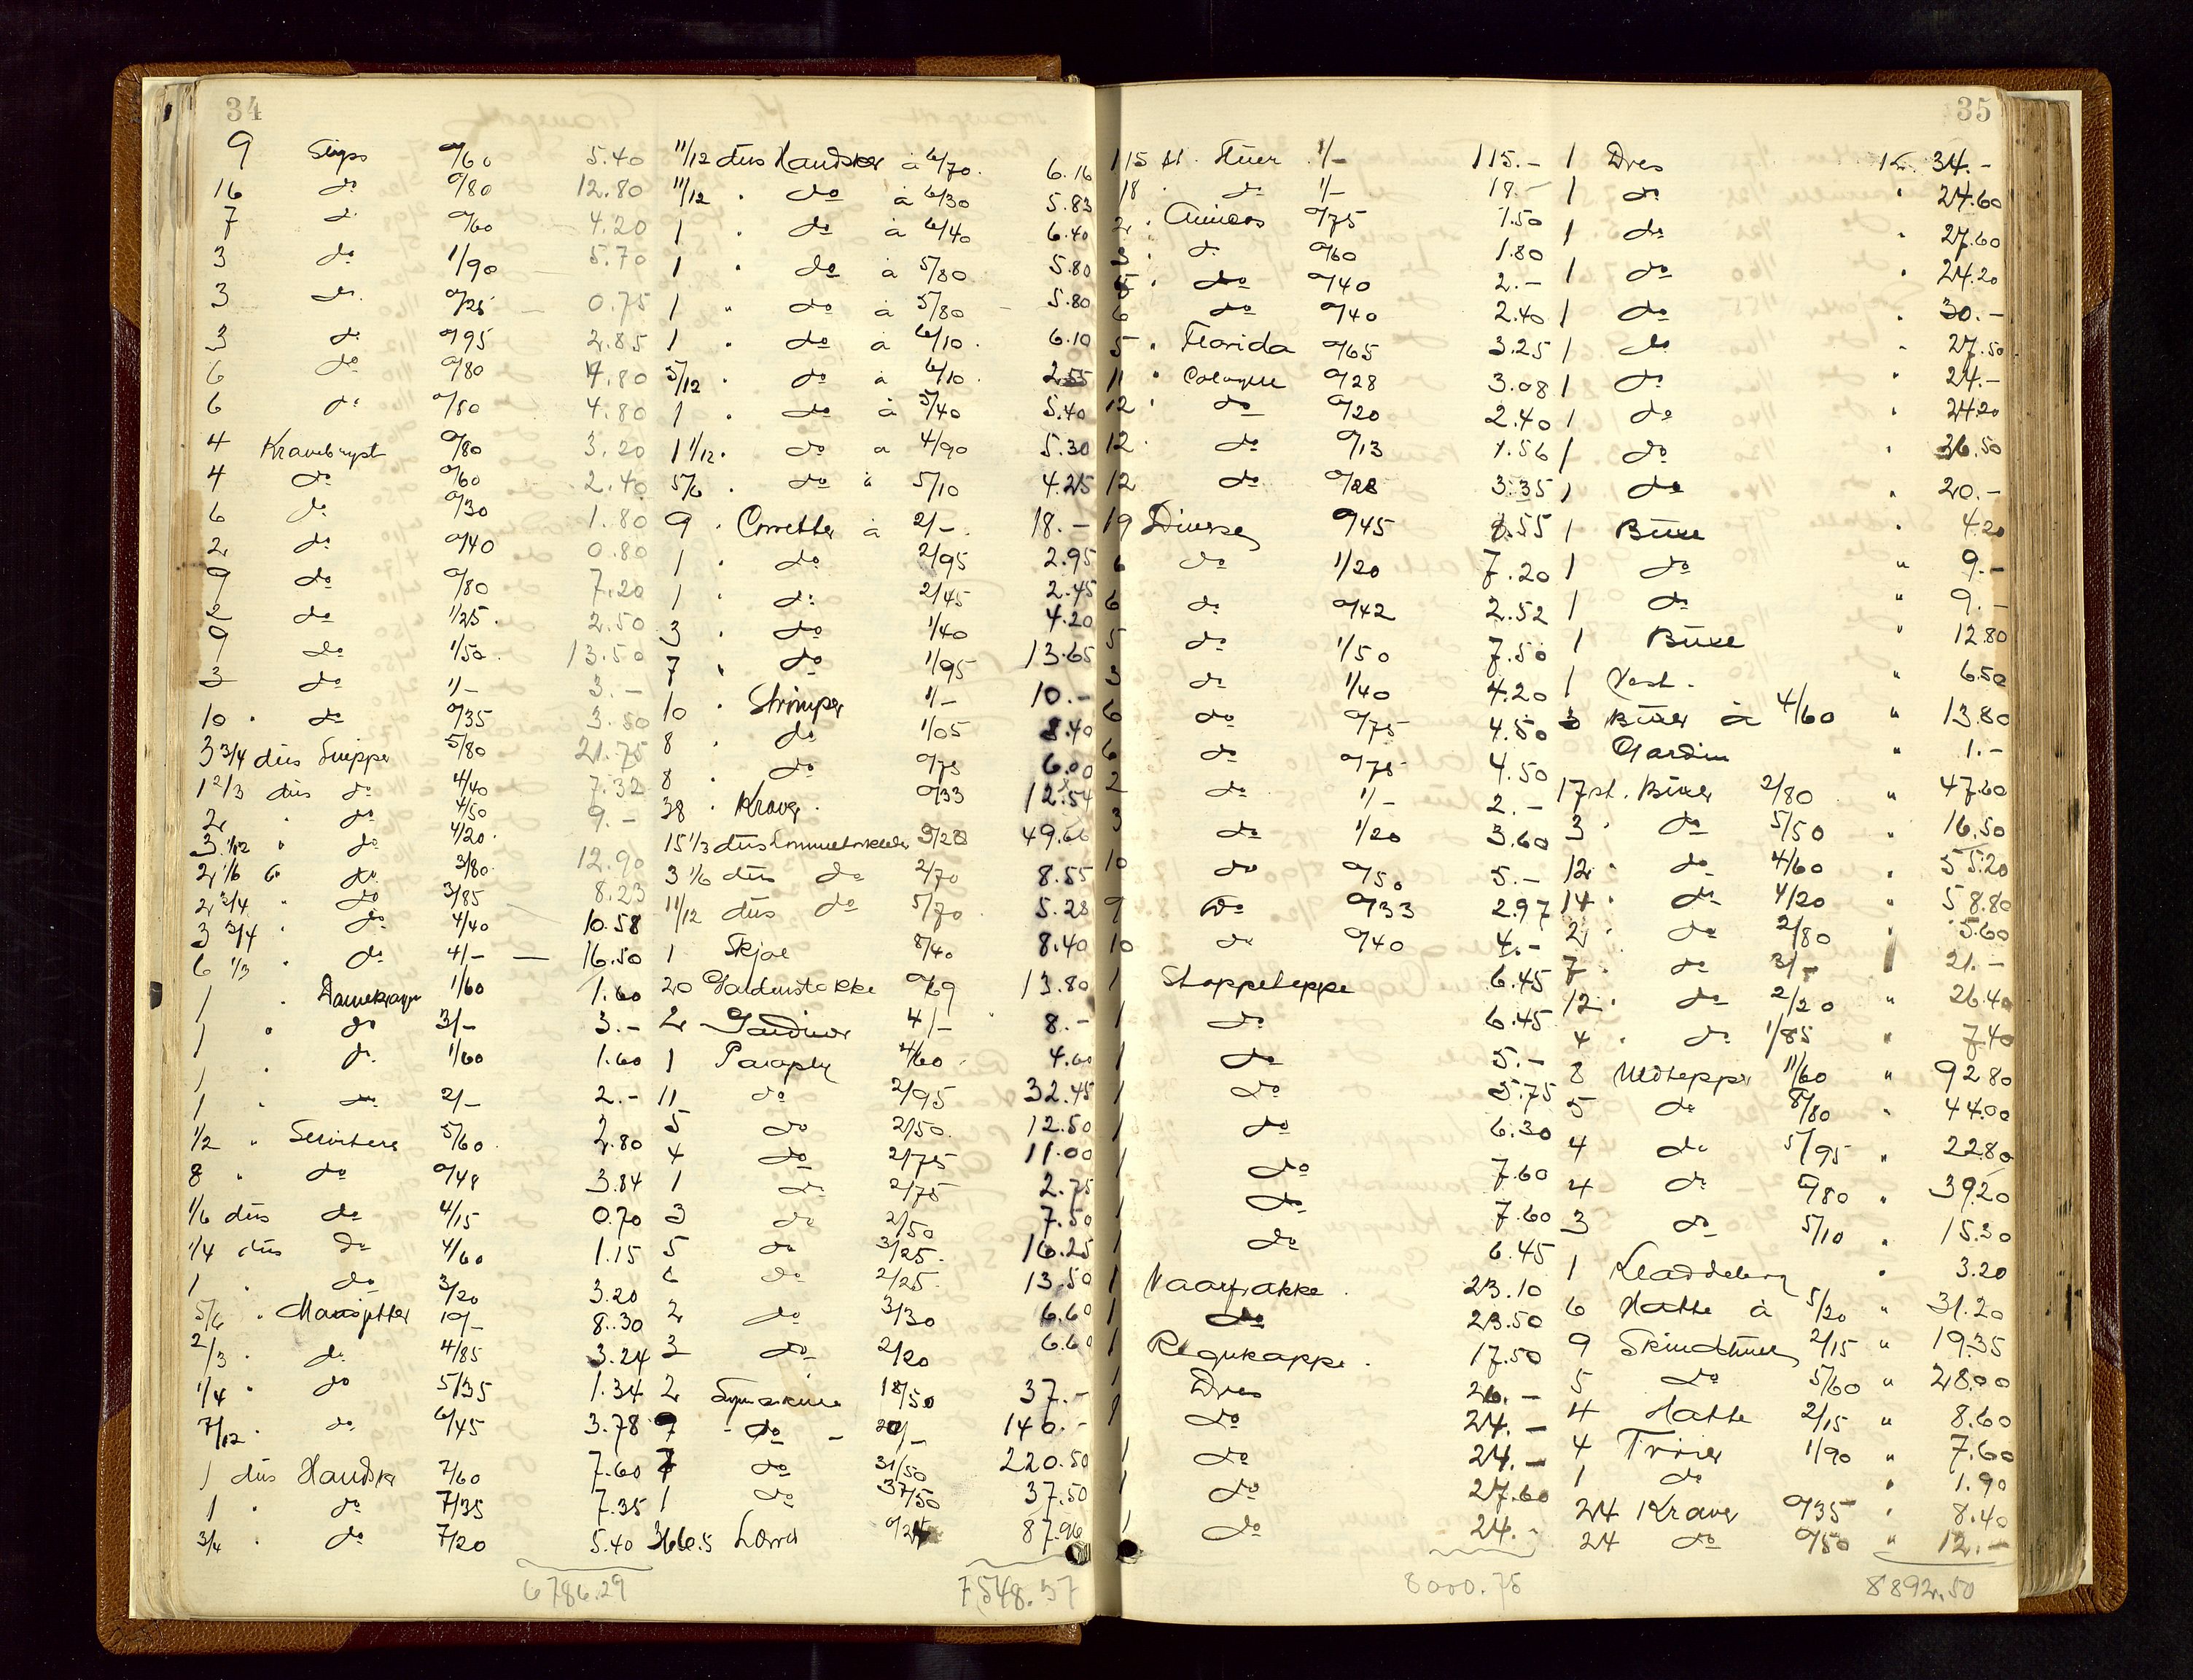 34
9 Slips 0/60 5.40
16 do 0/80 12.80
7 do 0/60 4.20
3 do 1/90 5.70
3 do 0/25 0.75
3 do 0/95 2.85
6 do 0/80 4.80
6 do 0/80 4.80
4 0/80 3.20
4 do 0/60 2.40
6 do 0/30 1.80
2 do 0/40 0.80
9 do 0/80 7.20
2 do 1/25. 2.50
9 do 1/50. 13.50
3 do 1/- 3.-
10 " do 0/35 3.50
3 3/4 dus Snipper 5/80 21.75
1 2/3 dus do 4/40 7.32
2 " do 4/50 9.-
3 1/12 " do 4/20. 12.90
2 1/6 do 3/80. 8.23
2 3/4 " do 3/85 10.58
3 3/4 " do 4/40 16.50
6 1/3 " do 4/-
1 " Damekrage 1/60 1.60
1 " do 3/- 3.-
1 " do 1/60 1.60
1 " do 2/- 2.-
1/2 " Serviters 5/60. 2.80
8 " do 0/48 3.84
1/6 dus do 4/15 0.70
1/4 dus do 4/60 1.15
1 " do 3/20 3.20
5/6 " Mansjetter 10/- 8.30
2/3 " do 4/85 3.24
1/4 " do 5/35 1.34
7/12 " do 6/45 3.78
1 dus Handsker 7/60 7.60
1 " do 7/35 7.35
3/4 " do 7/20 5.40
6786.29
11/12 dus Handsker à 6/70. 6.16
11/12 " do à 6/30 5.83
1 " do à 6/40 6.40
1 " do à 5/80 5.80
1 " do à 5/80 5.80
1 " do à 6/10. 6.10
5/12 " do à 6/10. 2.55
1 " do à 5/40 5.40
1 1/12 " do à 4/90 5.30
5/6 " do à 5/10 4.25
9 " Corretter à 2/- 18.-
1 " do 2/95 2.95
1 " do 2/45 2.45
3 " do 1/40 4.20
7 " do 1/95 13.65
10 " Strømper 1/- 10.-
8 " do 1/05 8.40
8 " do 0/75 6.00
38 " Kraver. 0/33 12.54
15 1/3 dus Lommetørklæder 3/20 49.66
3 1/6 dus do 2/70 8.55
11/12 dus do 5/70. 5.28
1 Skjal 8/40 8.40
20 Gardinstokke 0/69 13.80
2 Gardiner 4/- 8.-
1 Paraply 4/60. 4.60
11 do 2/95 32.45
5 do 2/50. 12.50
4 do 2/75 11.00
1 do 2/75 2.75
3 do 2/50 7.50
5 do 3/25. 16.25
6 do 2/25. 13.50
2 do 3/30 6.60
3 do 2/20 6.60
2 Symaskine 18/50 37.-
7 - do - 20/- 140.-
7 do 31/50 220.50
1 do 37/50 37.50
366.5 Lærred 0/24 87.96
7548.57
35
115 st. Huer 1/- 115.-
18 " do 1/- 18.-
2 " 0/75 1.50
3 " do 0/60 1.80
5 " do 0/40 2.-
6 do 0/40 2.40
5 " Florida 0/65 3.25
11 " Cologne 0/28 3.08
12 " do 0/20 2.40
12 " do 0/13 1.56
12 do 0/28 3.35
19 Diverse 0/45 8.55
6 do 1/20 7.20
6 do 0/42 2.52
5 do 1/50 7.50
3 do 1/40 4.20
6 do 0/75 4.50
6 do 0/75 4.50
2 do 1/- 2.-
3 do 1/20 3.60
10 do 0/50 5.-
9 do 0/33 2.97
10 do 0/40 4.-
1 Stoppeteppe 6.45
1 do 6.45
1 do 5.-
1 do 5.75
1 do 6.30
1 do 7.60
1 do 7.60
1 do 6.45
1 Vaarfrakke. 23.10
1 do 23.50
1 Regnkappe. 17.50
1 Dres 26.-
1 do 24.-
1 do 24.-
1 do 27.60
1 do 24.-
8000.75
1 Dres Kr. 34.-
1 do " 24.60
1 do " 27.60
1 do " 24.20
1 do " 30.-
1 do " 27.50
1 do " 24.-
1 do " 24.20
1 do " 36.50
1 do " 20.-
1 Buxe " 4.20
1 do " 9.-
1 do " 9.-
1 Buxe " 12.80
1 Vest. " 6.50
3 Buxer à 4/60 " 13.80
Gardin " 1.-
17 st. Buxer 2/80 " 47.60
3 " do 5/50 " 16.50
12 " do 4/60 " 55.20
14 " do 4/20 " 58.80
2 " do 2/80 " 5.60
7 " do 3/- 21.-
12 " do 2/20 " 26.40
4 " do 1/85 " 7.40
8 Uldtepper 11/60 " 92.80
5 do 8/80 " 44.00
4 do 5/95 " 22.80
4 do 9/80 " 39.20
3 do 5/10 " 15.30
1 " 3.20
6 Hatte à 5/20 " 31.20
9 Skindhuer 2/15 " 19.35
5 do 5/60 " 28.00
4 Hatte 2/15 " 8.60
4 Trøier 1/90 " 7.60
1 do " 1.90
24 Kraver 0/35 " 8.40
24 do 0/50 " 12.-
8892.50